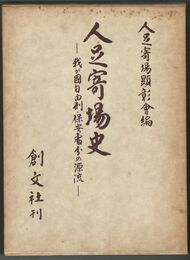 人足寄場顕彰會編
人足寄場史
―我が國自由刑・保安処分の源流―
創文社刊